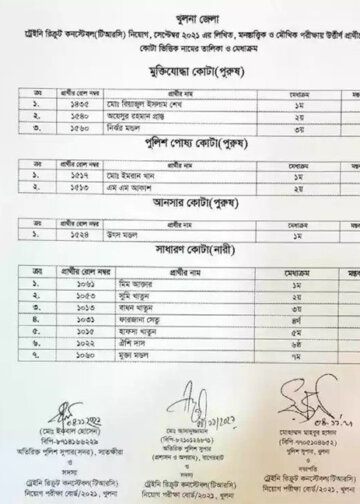 খুলনা জেলা
ট্রেইনি রিক্রুট কনস্টেবল(টিআরসি) নিয়োগ, সেপ্টেম্বর ২০২১ এর লিখিত, মনস্তাত্ত্বিক ও মৌখিক পরীক্ষায় উত্তীর্ণ প্রার্থীর
কোটা ভিত্তিক নামের তালিকা ও মেধাক্রম
মুক্তিযোদ্ধা কোটা(পুরুষ)
ক্রঃ প্রার্থীর রোল নম্বর প্রার্থীর নাম মেধাক্রম মন্তব
১. ১৪৩৫ মোঃ রিয়াজুল ইসলাম শেখ ১ম
২. ১৫৪০ অহেদুর রহমান প্রান্ত ২য়
৩. ১৫৬০ নির্ঝর মন্ডল ৩য়
পুলিশ পোষ্য কোটা(পুরুষ)
ক্রঃ প্রার্থীর রোল নম্বর প্রার্থীর নাম মেধাক্রম মন্তব
১. ১৫১৭ মোঃ ইমরান খান ১ম
২. ১৫১৩ এম এম আকাশ ২য়
আনসার কোটা(পুরুষ)
ক্রঃ প্রার্থীর রোল নম্বর প্রার্থীর নাম মেধাক্রম মন্তব
১. ১৫২৪ উৎস মন্ডল ১ম
সাধারণ কোটা(নারী)
ক্রঃ প্রার্থীর রোল নম্বর প্রার্থীর নাম মেধাক্রম মন্তব
১. ১০৬১ মিম আক্তার ১ম
২. ১০৫৩ সুমি খাতুন ২য়
৩. ১০১৩ বাধন খাতুন ৩য়
৪. ১০৩১ ফারজানা সেতু ৪র্থ
৫. ১০১৫ হাফসা খাতুন ৫ম
৬. ১০২২ ঐশি দাস ৬ষ্ঠ
৭. ১০৬০ মুক্তা মন্ডল ৭ম
(মোঃ ইকবাল হোসেন)
অতিরিক্ত পুলিশ সুপার(সদর), সাতক্ষীরা
ও
সদস্য
ট্রেইনি রিক্রুট কনস্টেবল(টিআরসি)
নিয়োগ পরীক্ষা বোর্ড/২০২১, খুলনা
মোঃ আসাদুজ্জামান
অতিরিক্ত পুলিশ সুপার
(প্রশাসন ও অপরাধ), বাগেরহাট
ও
সদস্য
ট্রেইনি রিক্রুট কনস্টেবল(টিআরসি)
নিয়োগ পরীক্ষা বোর্ড/২০২১, খুলনা
মোহাম্মদ মাহবুব হাসান
বিপি ৭৭০৫১০৪৬৫২
পুলিশ সুপার, খুলনা
ও
সভাপতি
ট্রেইনি রিক্রুট কনস্টেবল(টিআরসি)
নিয়োগ পরীক্ষা বোর্ড/২০২১, খুলনা